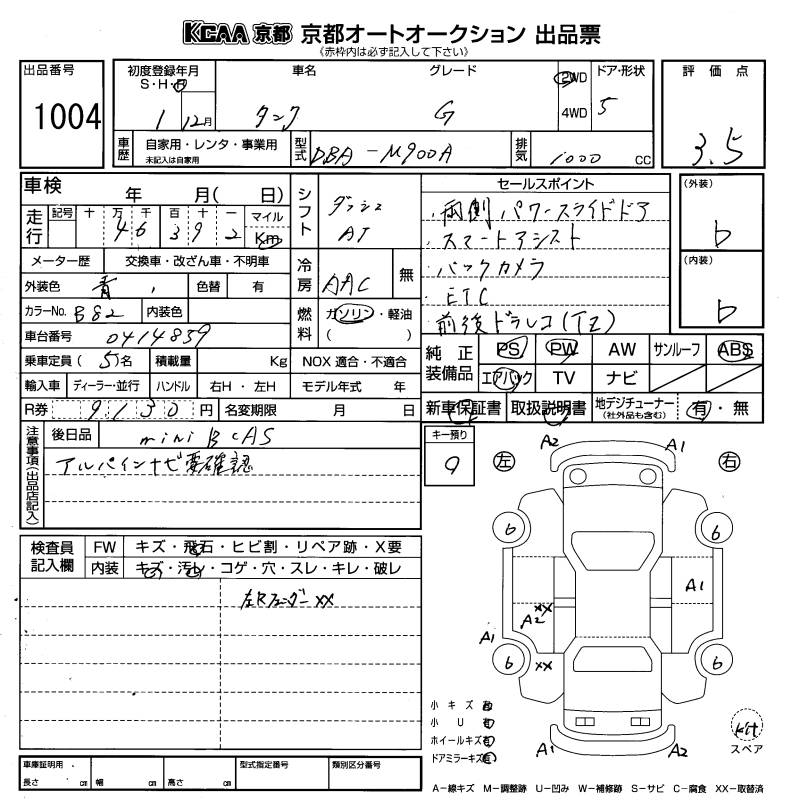 KCAA 京都 京都オートオークション 出品票
《赤枠内は必ず記入して下さい》
出品番号
1004
初度登録年月
S・H・R
1 12月
車名
タンク
グレード
G
2WD
4WD
ドア・形状
5
評価点
3.5
車歴
自家用・レンタ・事業用
未記入は自家用
型式
DBA-M900A
排気
1000 CC
車検 年 月( 日)
走行
記号 十 万 千 百 十 一 マイル
4 6 3 9 2 Km
メーター歴 交換車・改ざん車・不明車
外装色 青 色替 有
カラーNo. B82 内装色
車台番号 0414839
乗車定員 ( 5)名 積載量 Kg
輸入車 ディーラー・並行 ハンドル 右H・左H
R券 9130円 名変期限 月 日
シフト
ダッシュ
AT
冷房
AAC 無
燃料
ガソリン・軽油
( )
NOX 適合・不適合
モデル年式 年
セールスポイント
・両側パワースライドドア
・スマートアシスト
・バックカメラ
・ETC
・前後ドラレコ(TZ)
(外装)
b
(内装)
b
純正装備品
PS PW AW サンルーフ ABS
エアバック TV ナビ
新車保証書 取扱説明書 地デジチューナー (社外品も含む) 有・無
注意事項(出品店記入)
後日品 miniBCAS
アルパインナビ要確認
キー預り
9
検査員記入欄
FW キズ・飛石・ヒビ割・リペア跡・X要
内装 キズ・汚レ・コゲ・穴・スレ・キレ・破レ
左Rフェンダー XX
A2 A1
左 右
6 6
A1
XX
A2
A1
6 XX 6
A1 A2
小キズ 有
小U 有
ホイールキズ 有
ドアミラーキズ 有
kit
スペア
車庫証明用
長さ cm 幅 cm 高さ cm
型式指定番号
類別区分番号
A-線キズ M-調整跡 U-凹み W-補修跡 S-サビ C-腐食 XX-取替済